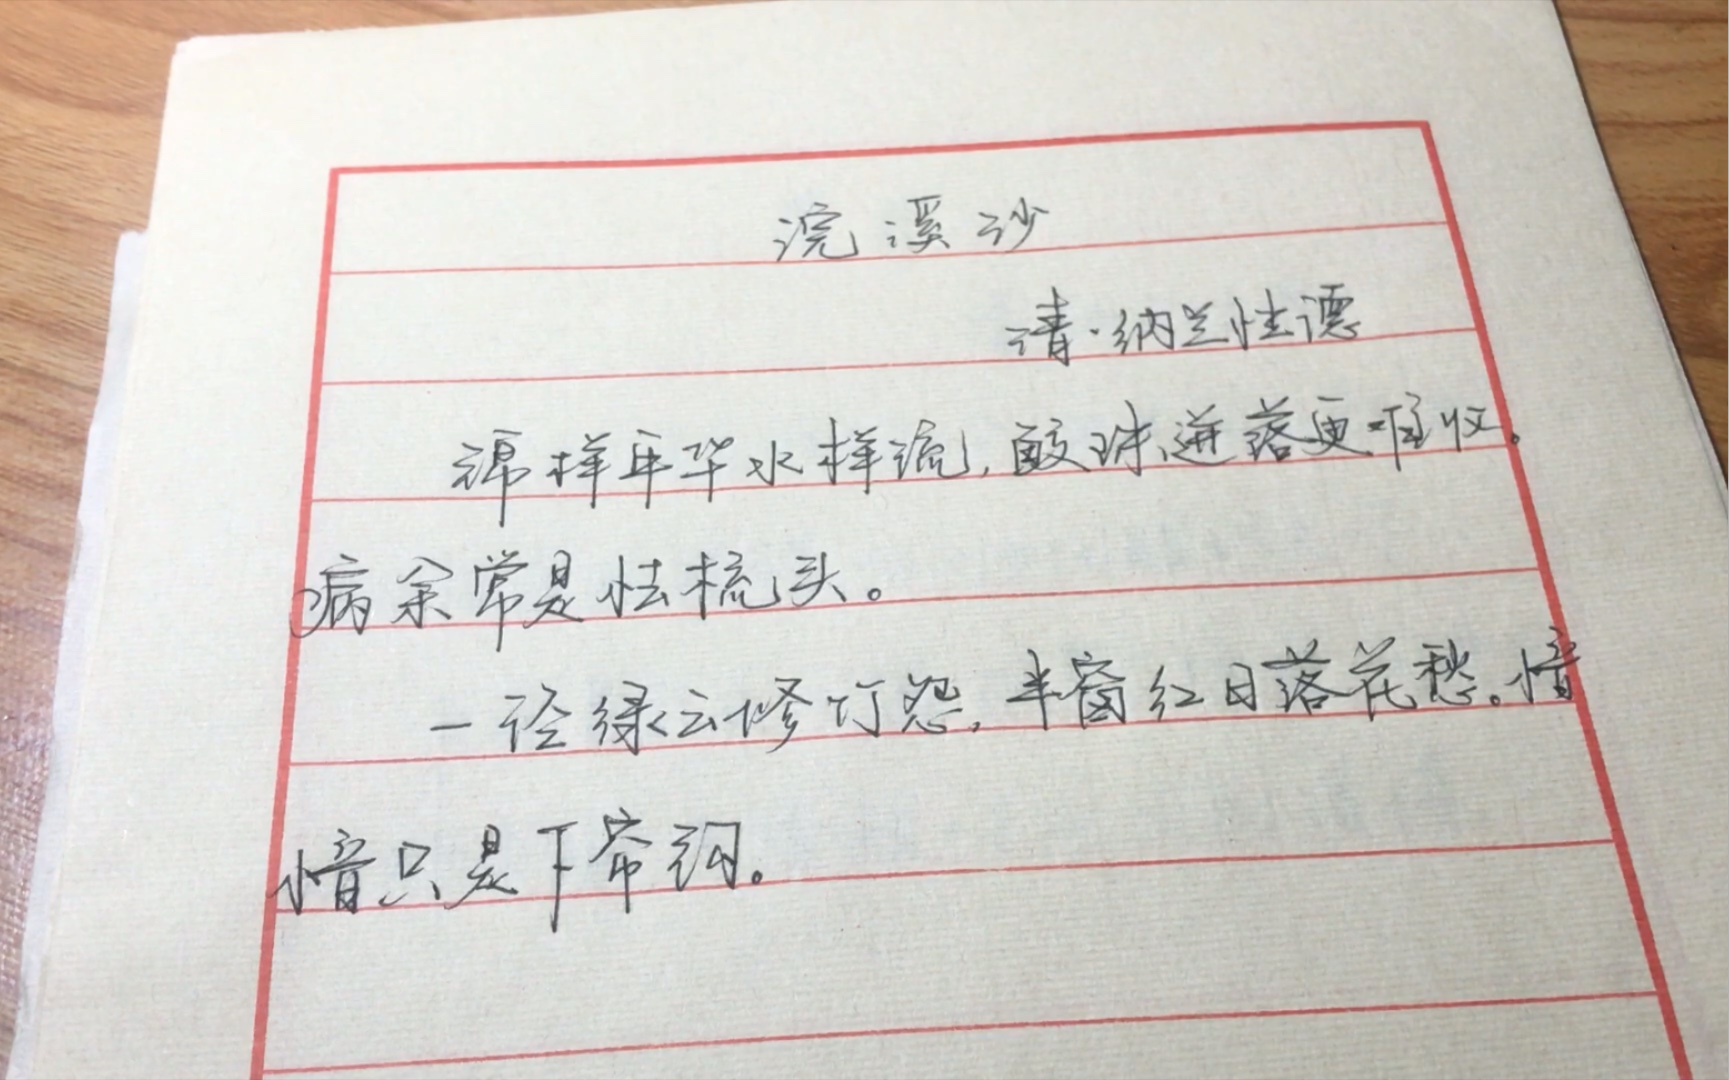 浣溪沙
清·纳兰性德
锦样年华水样流，鲛珠迸落更难收。
病余常是怯梳头。
一径绿云修竹怨，半窗红日落花愁。愔
愔只是下帘钩。